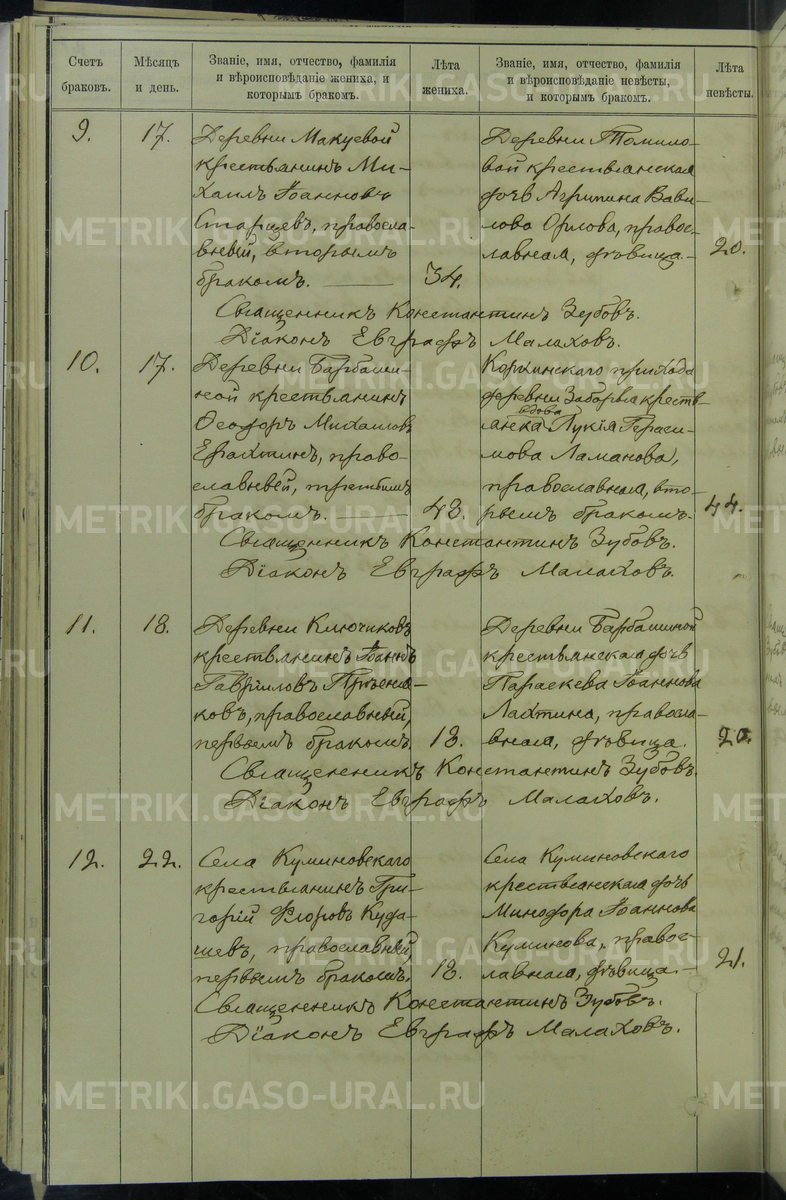 Счетъ браковъ.
Мѣсяцъ и день.
Званіе, имя, отчество, фамилія и вѣроисповѣданіе жениха, и которымъ бракомъ.
Лѣта жениха.
Званіе, имя, отчество, фамилія и вѣроисповѣданіе невѣсты, и которымъ бракомъ.
Лѣта невѣсты.
9.
17.
Деревни Макуевой
крестьянинъ Ми-
хаилъ Іоанновъ
Старцевъ, правосла-
вный, вторымъ
бракомъ.
34.
Деревни Томило-
вой крестьянская
дочь Агрипина Вави-
лова Орлова, правос-
лавная, дѣвица.
20.
Священникъ Константинъ Зубовъ.
Діаконъ Евграфъ Малаховъ.
10.
17.
Деревни Барбаши-
ной крестьянинъ
Ѳеодоръ Михаиловъ
Елахтинъ, право-
славный, третьимъ
бракомъ.
43.
Коркинскаго прихода
деревни Заборья кресть-
вдова
янка Лукія Гераси-
мова Ламанова,
православная, вто-
рымъ бракомъ.
44.
Священникъ Константинъ Зубовъ.
Діаконъ Евграфъ Малаховъ.
11.
18.
Деревни Ключиковъ
крестьянинъ Іоаннъ
Гавріиловъ Прѣсня-
ковъ, православный,
первымъ бракомъ.
18.
Деревни Барбашиной
крестьянская дочь
Параскева Іоаннова
Лахтина, правосла-
вная, дѣвица.
20.
Священникъ Константинъ Зубовъ.
Діаконъ Евграфъ Малаховъ.
12.
22.
Села Куминовскаго
крестьянинъ Гри-
горій Флоровъ Куда-
шевъ, православный,
первымъ бракомъ.
18.
Села Куминовскаго
крестьянская дочь
Минодора Іоаннова
Куминова, правос-
лавная, дѣвица.
21.
Священникъ Константинъ Зубовъ.
Діаконъ Евграфъ Малаховъ.
METRIKI.GASO-URAL.RU